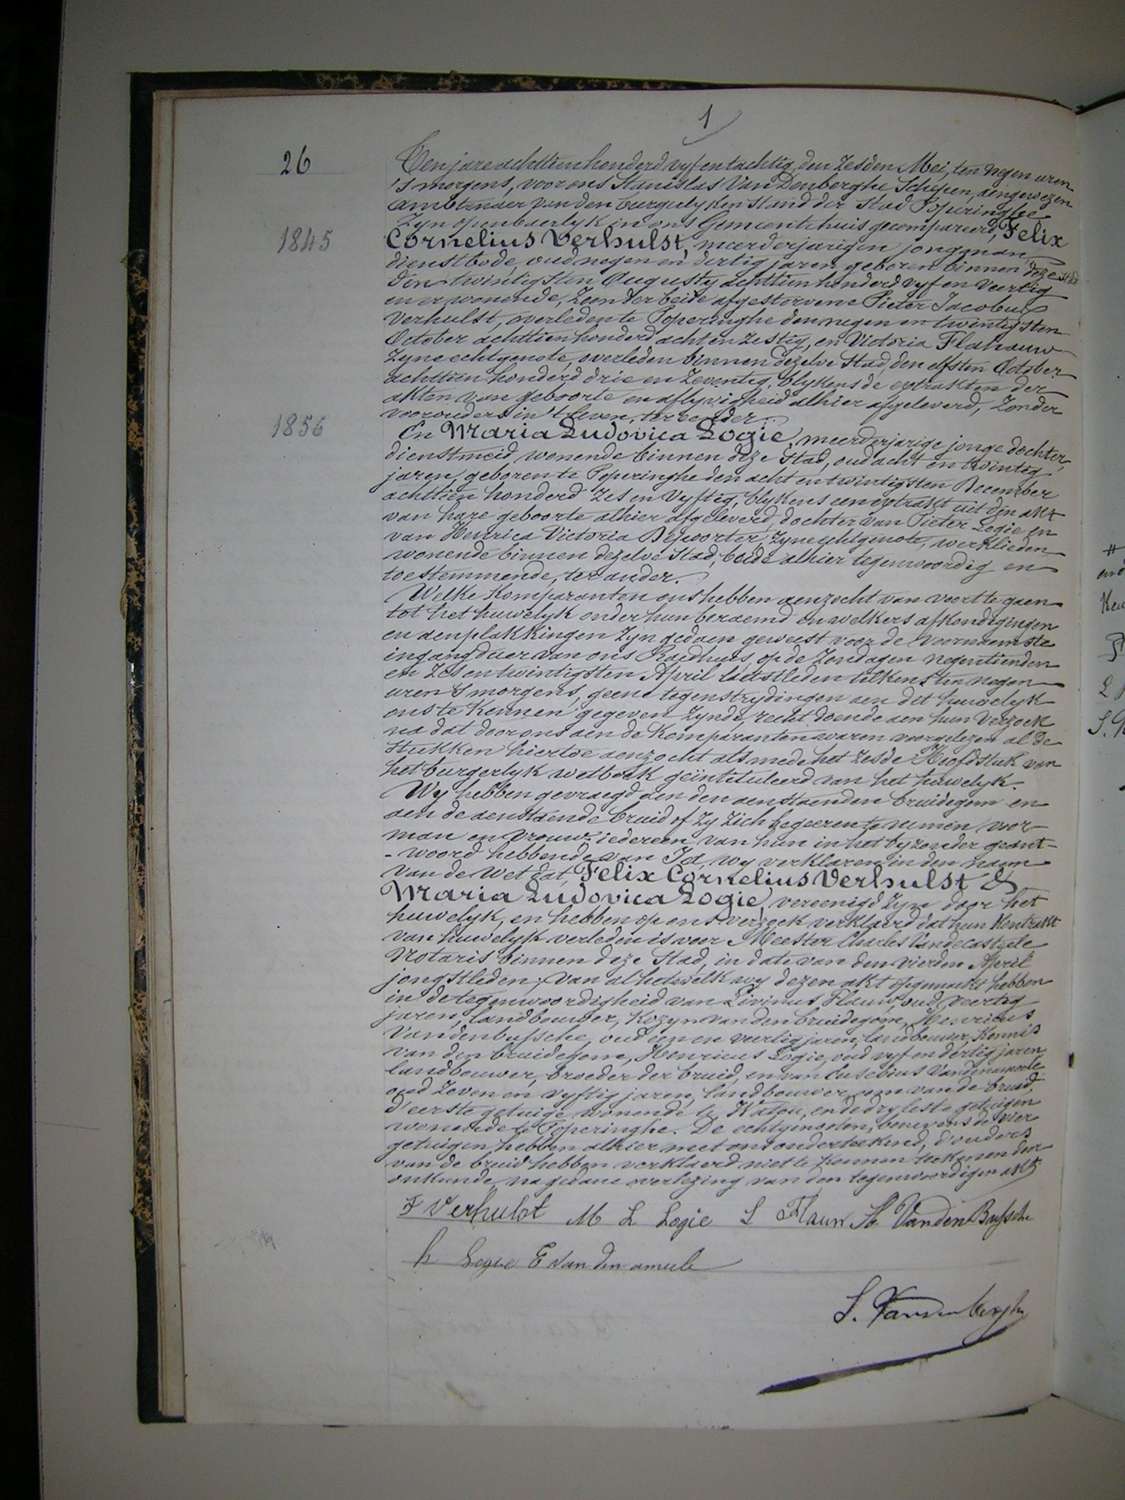 1
26
Ten jare achttien honderd vyf en tachtig, den zesden Mei, ten negen uren
's morgens, voor ons Stanislas Van Denberghe Schepen, aengewezen
ambtenaer van den burgerlyken stand der Stad Poperinghe
Zyn openbaerlyk in ons Gemeentehuis gecompareerd, Felix
1845
Cornelius Verhulst, meerderjarigen jongman
dienstbode, oud negen en dertig jaren, geboren binnen deze Stad
den twintigsten Augusty achttien honderd vyf en veertig
en er wonende, zoon der beide afgestorvene Pieter Jacobus
Verhulst, overleden te Poperinghe den negen en twintigsten
October achttien honderd acht en zestig, en Victoria Flahauw
zyne echtgenote, overleden binnen dezelve Stad den elfsten October
achttien honderd drie en zeventig, blykens de extrakten der
akten van geboorte en aflyvigheid alhier afgeleverd, zonder
voorouders in 't leven, ter eender.
1856
En Maria Ludovica Logie, meerderjarige jonge dochter,
dienstmeid, wonende binnen deze Stad, oud acht en twintig
jaren, geboren te Poperinghe den acht en twintigsten December
achttien honderd zes en vyftig, blykens een extrakt uit den akt
van hare geboorte alhier afgeleverd, dochter van Pieter Logie en
van Henrica Victoria Devoorter, zyne echtgenote, werklieden
wonende binnen dezelve Stad, beide alhier tegenwoordig en
toestemmende, ter ander.
Welke Komparanten ons hebben aenzocht van voort te gaen
tot het huwelyk onder hun beraemd en welkers afkondigingen
en aenplakkingen zyn gedaen geweest voor de voornaemste
ingangdeur van ons Raedhuis op de Zondagen negentienden
en zes en twintigsten April laetstleden telkens ten negen
uren 's morgens, geene tegenstrydingen aen dit huwelyk
ons te kennen gegeven zynde, recht doende aen hun verzoek
na dat door ons aen de Komparanten waren voorgelezen al de
stukken hiertoe aenzocht alsmede het zesde Hoofdstuk van
het burgerlyk wetboek geintituleerd van het huwelyk.
Wy hebben gevraegd aen den aenstaenden bruidegom en
aen de aenstaende bruid of zy zich begeeren te nemen voor
man en vrouw, iedereen van hun in het byzonder geant-
-woord hebbende van Ja, wy verklaren in den naem
van de Wet dat, Felix Cornelius Verhulst &
Maria Ludovica Logie, vereenigd zyn door het
huwelyk, en hebben op ons verzoek verklaerd dat hun Kontrakt
van huwelyk verleden is voor Meester Charles Vandecasteele
Notaris binnen deze Stad, in date van den vierden April
jongstleden, van al hetwelk wy dezen akt opgemaekt hebben
in de tegenwoordigheid van Livinus Flauw oud veertig
jaren, landbouwer, kozyn van den bruidegom, Henricus
Vandenbussche, oud een en veertig jaren, landbouwer, kennis
van den bruidegom, Henricus Logie, oud vyf en dertig jaren
landbouwer, broeder der bruid, en van Eusebius Vandenameele
oud zeven en vyftig jaren, landbouwer, oom van de bruid,
d'eerste getuige wonende te Watou, en de dry leste getuigen
wonende te Poperinghe. De echtgenoten, benevens de vier
getuigen hebben alhier met ons onderteekend, d'ouders
van de bruid hebben verklaerd niet te kunnen teekenen door
onkunde, na gedane overlezing van den tegenwoordigen akt
F Verhulst M L Logie L Flauw H. VandenBussche
h Logie E vanden ameele
S. Vandenberghe